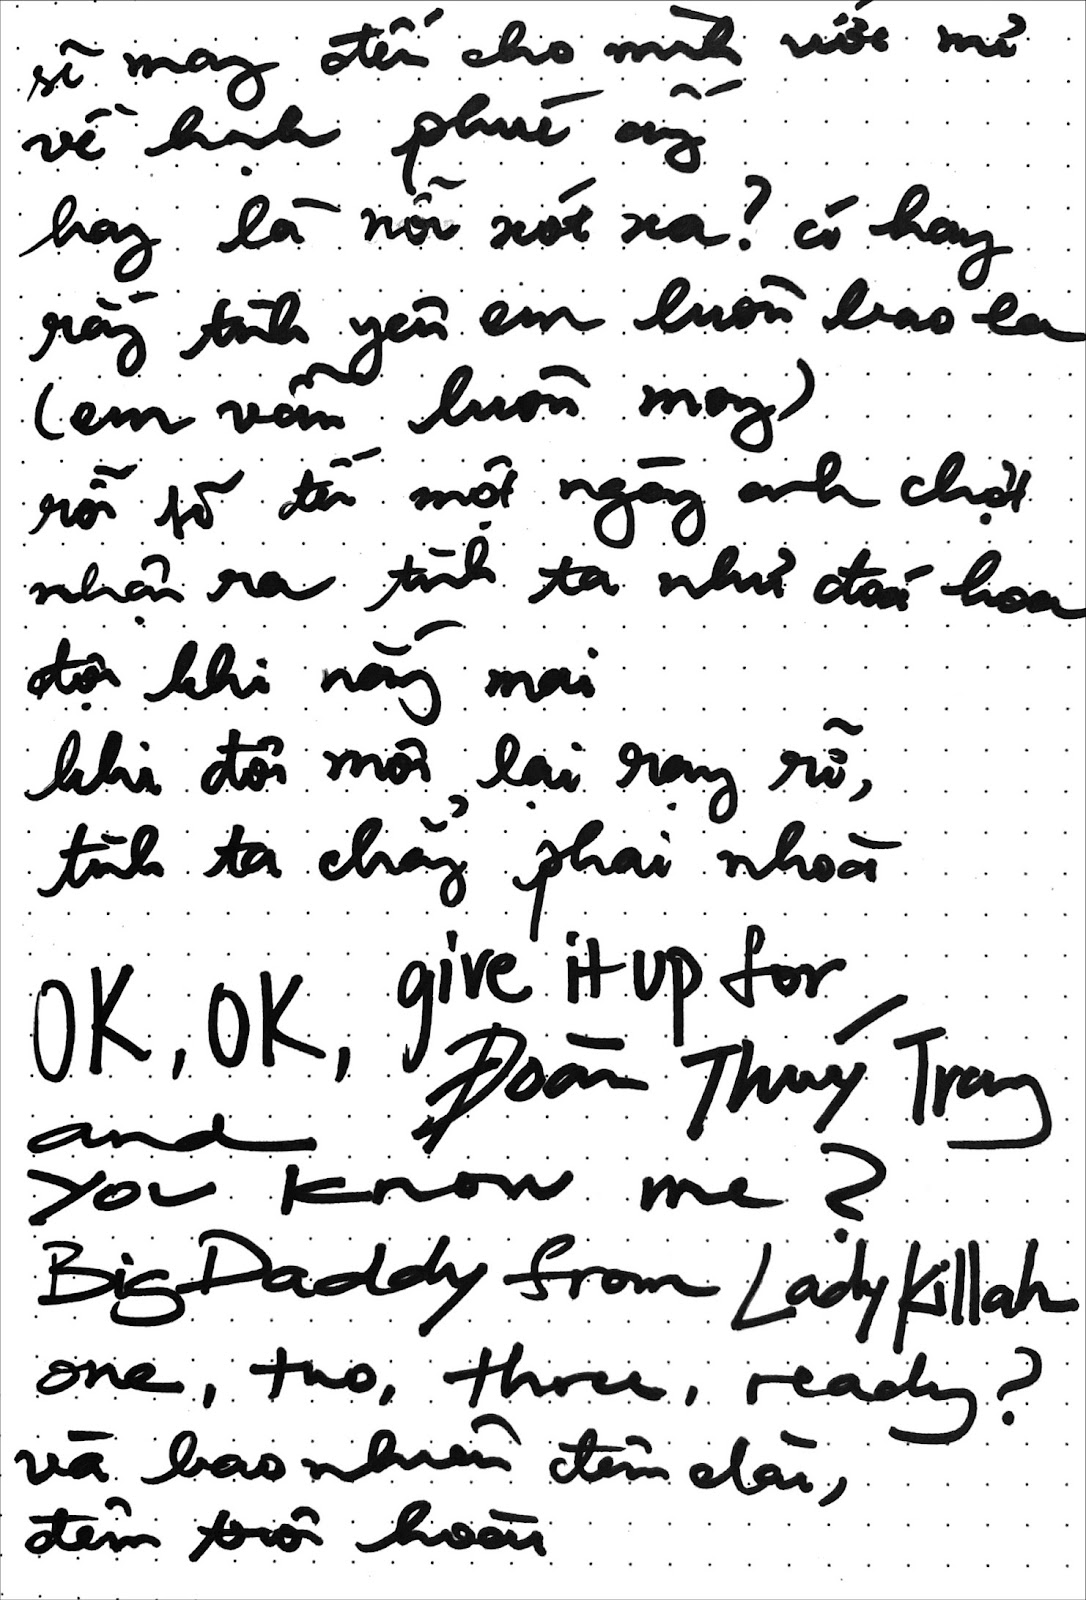 sẽ mang đến cho mình ước mơ
về hạnh phúc ấy
hay là nỗi xót xa? có hay
rằng tình yêu em luôn bao la
(em vẫn luôn mong)
rồi sẽ đến một ngày anh chợt
nhận ra tình ta như đoá hoa
đợi khi nắng mai
khi đôi môi lại rạng rỡ,
tình ta chẳng phai nhoà
OK, OK, give it up for
Đoàn Thuý Trang
and
you know me?
Big Daddy from LadyKillah
one, two, three, ready?
và bao nhiêu đêm dài,
đêm trôi hoài